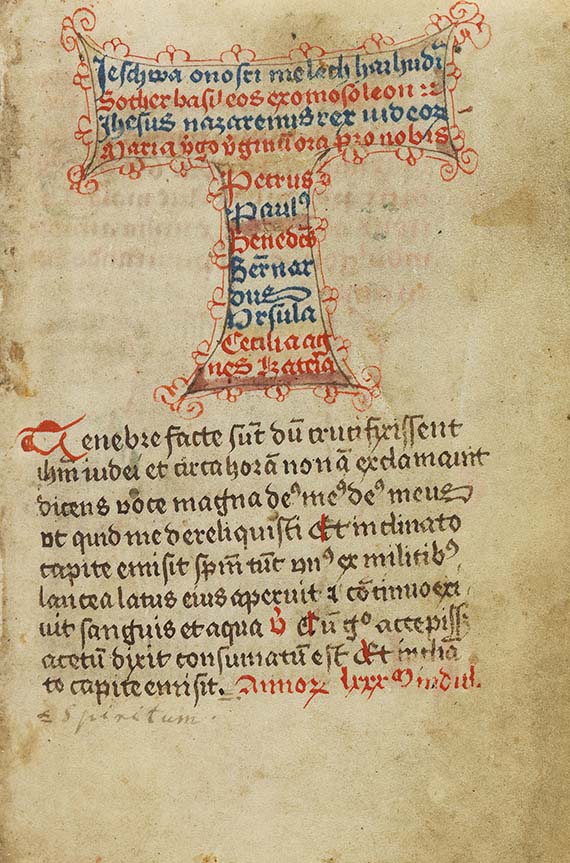 Jeschwa onosri melech haihudi
Sother basileos exomosoleon
Jhesus nazarenus rex iudeoꝝ
Maria v̄go v̄ginū ora pro nobis
Petrus
Paulꝰ
Benedcs̄
Bern̄ar
dus
Vrsula
Cecilia ag
nes kater̄a
Tenebre facte sūt dū crucifixissent
ihm̄ iudei et circa horā nonā exclamauit
dicens voce magna deꝰ meꝰ deꝰ meus
vt quid me dereliquisti Et inclinato
capite emisit spm̄ tūt vnꝰ ex militibꝰ
lancea latus eius aperuit ⁊ cōtinuo exi
uit sanguis et aqua V̄ Cū gͦ accepiss
acetū dixit consumatū est Et inclīa
to capite emisit. Annoꝝ lxxx
spiritum.